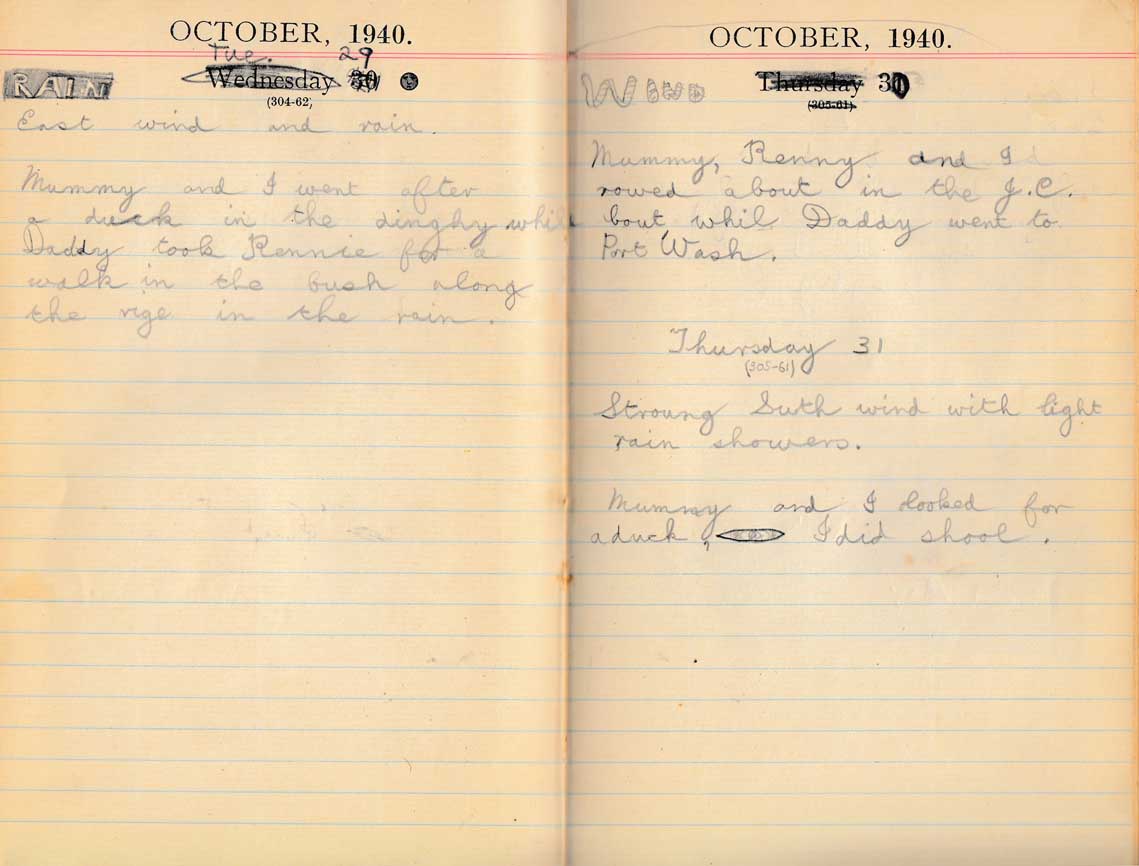 OCTOBER, 1940.
Tue. 29
RAIN Wednesday 30
(304-62)
East wind and rain.
Mummy and I went after
a duck in the dinghy whil
Daddy took Rennie for a
walk in the bush along
the rige in the rain.
OCTOBER, 1940.
WIND Thursday 30
(305-61)
Mummy, Renny and I
rowed about in the J.C.
bout, whil Daddy went to
Port Wash.
Thursday 31
(305-61)
Stroung Suth wind with light
rain showers.
Mummy and I looked for
a duck, I did shool.